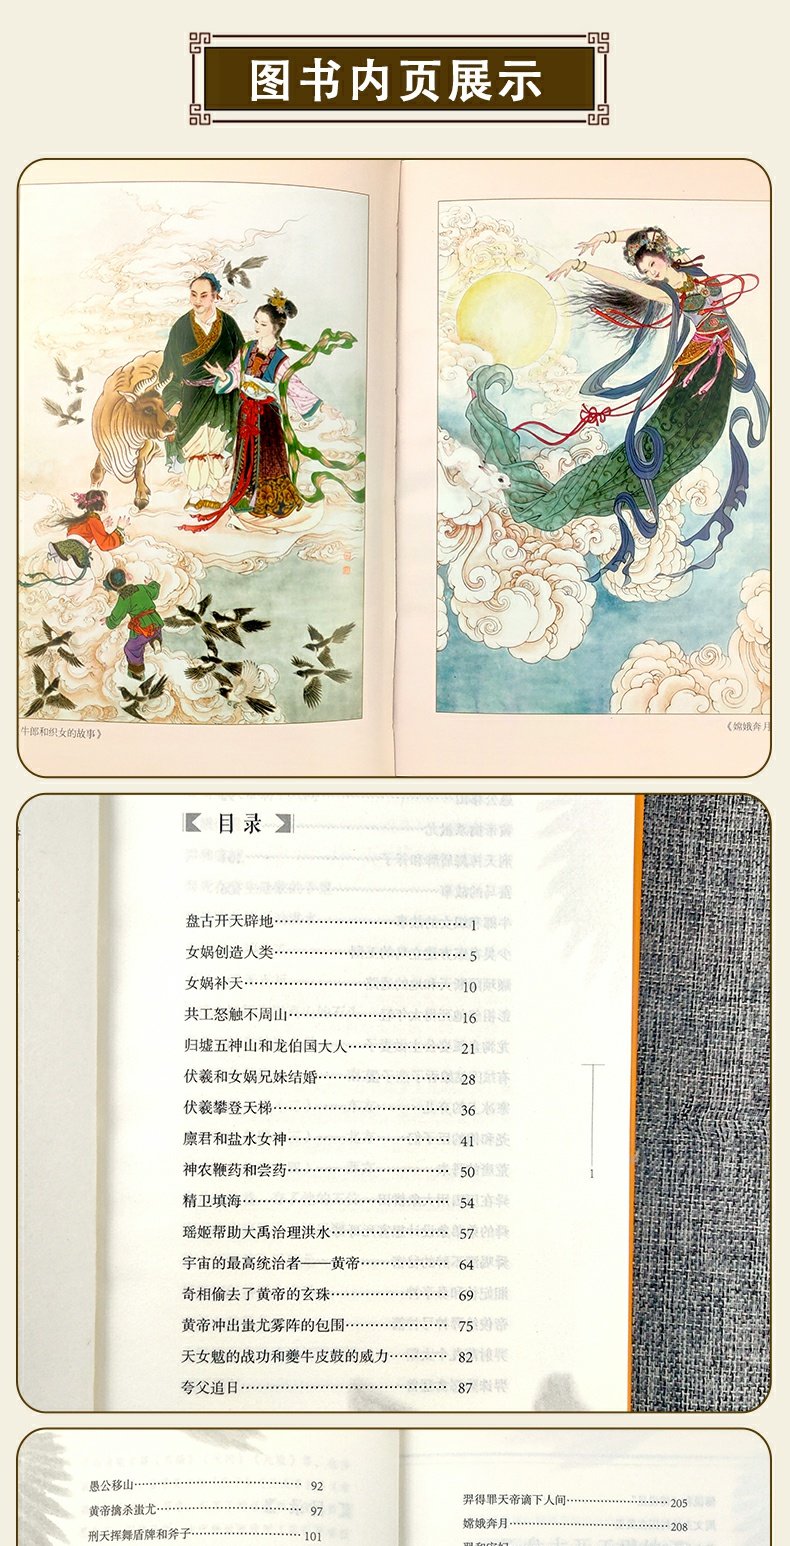 图书内页展示
牛郎和织女的故事》
《嫦娥奔月
目录
盘古开天辟地 1
女娲创造人类 5
女娲补天 10
共工怒触不周山 16
归墟五神山和龙伯国大人 21
伏羲和女娲兄妹结婚 28
伏羲攀登天梯 36
廪君和盐水女神 41
神农鞭药和尝药 50
精卫填海 54
瑶姬帮助大禹治理洪水 57
宇宙的最高统治者——黄帝 64
奇相偷去了黄帝的玄珠 69
黄帝冲出蚩尤雾阵的包围 75
天女魃的战功和夔牛皮鼓的威力 82
夸父追日 87
1
愚公移山 92
黄帝擒杀蚩尤 97
刑天挥舞盾牌和斧子 101
羿得罪天帝谪下人间 205
嫦娥奔月 208